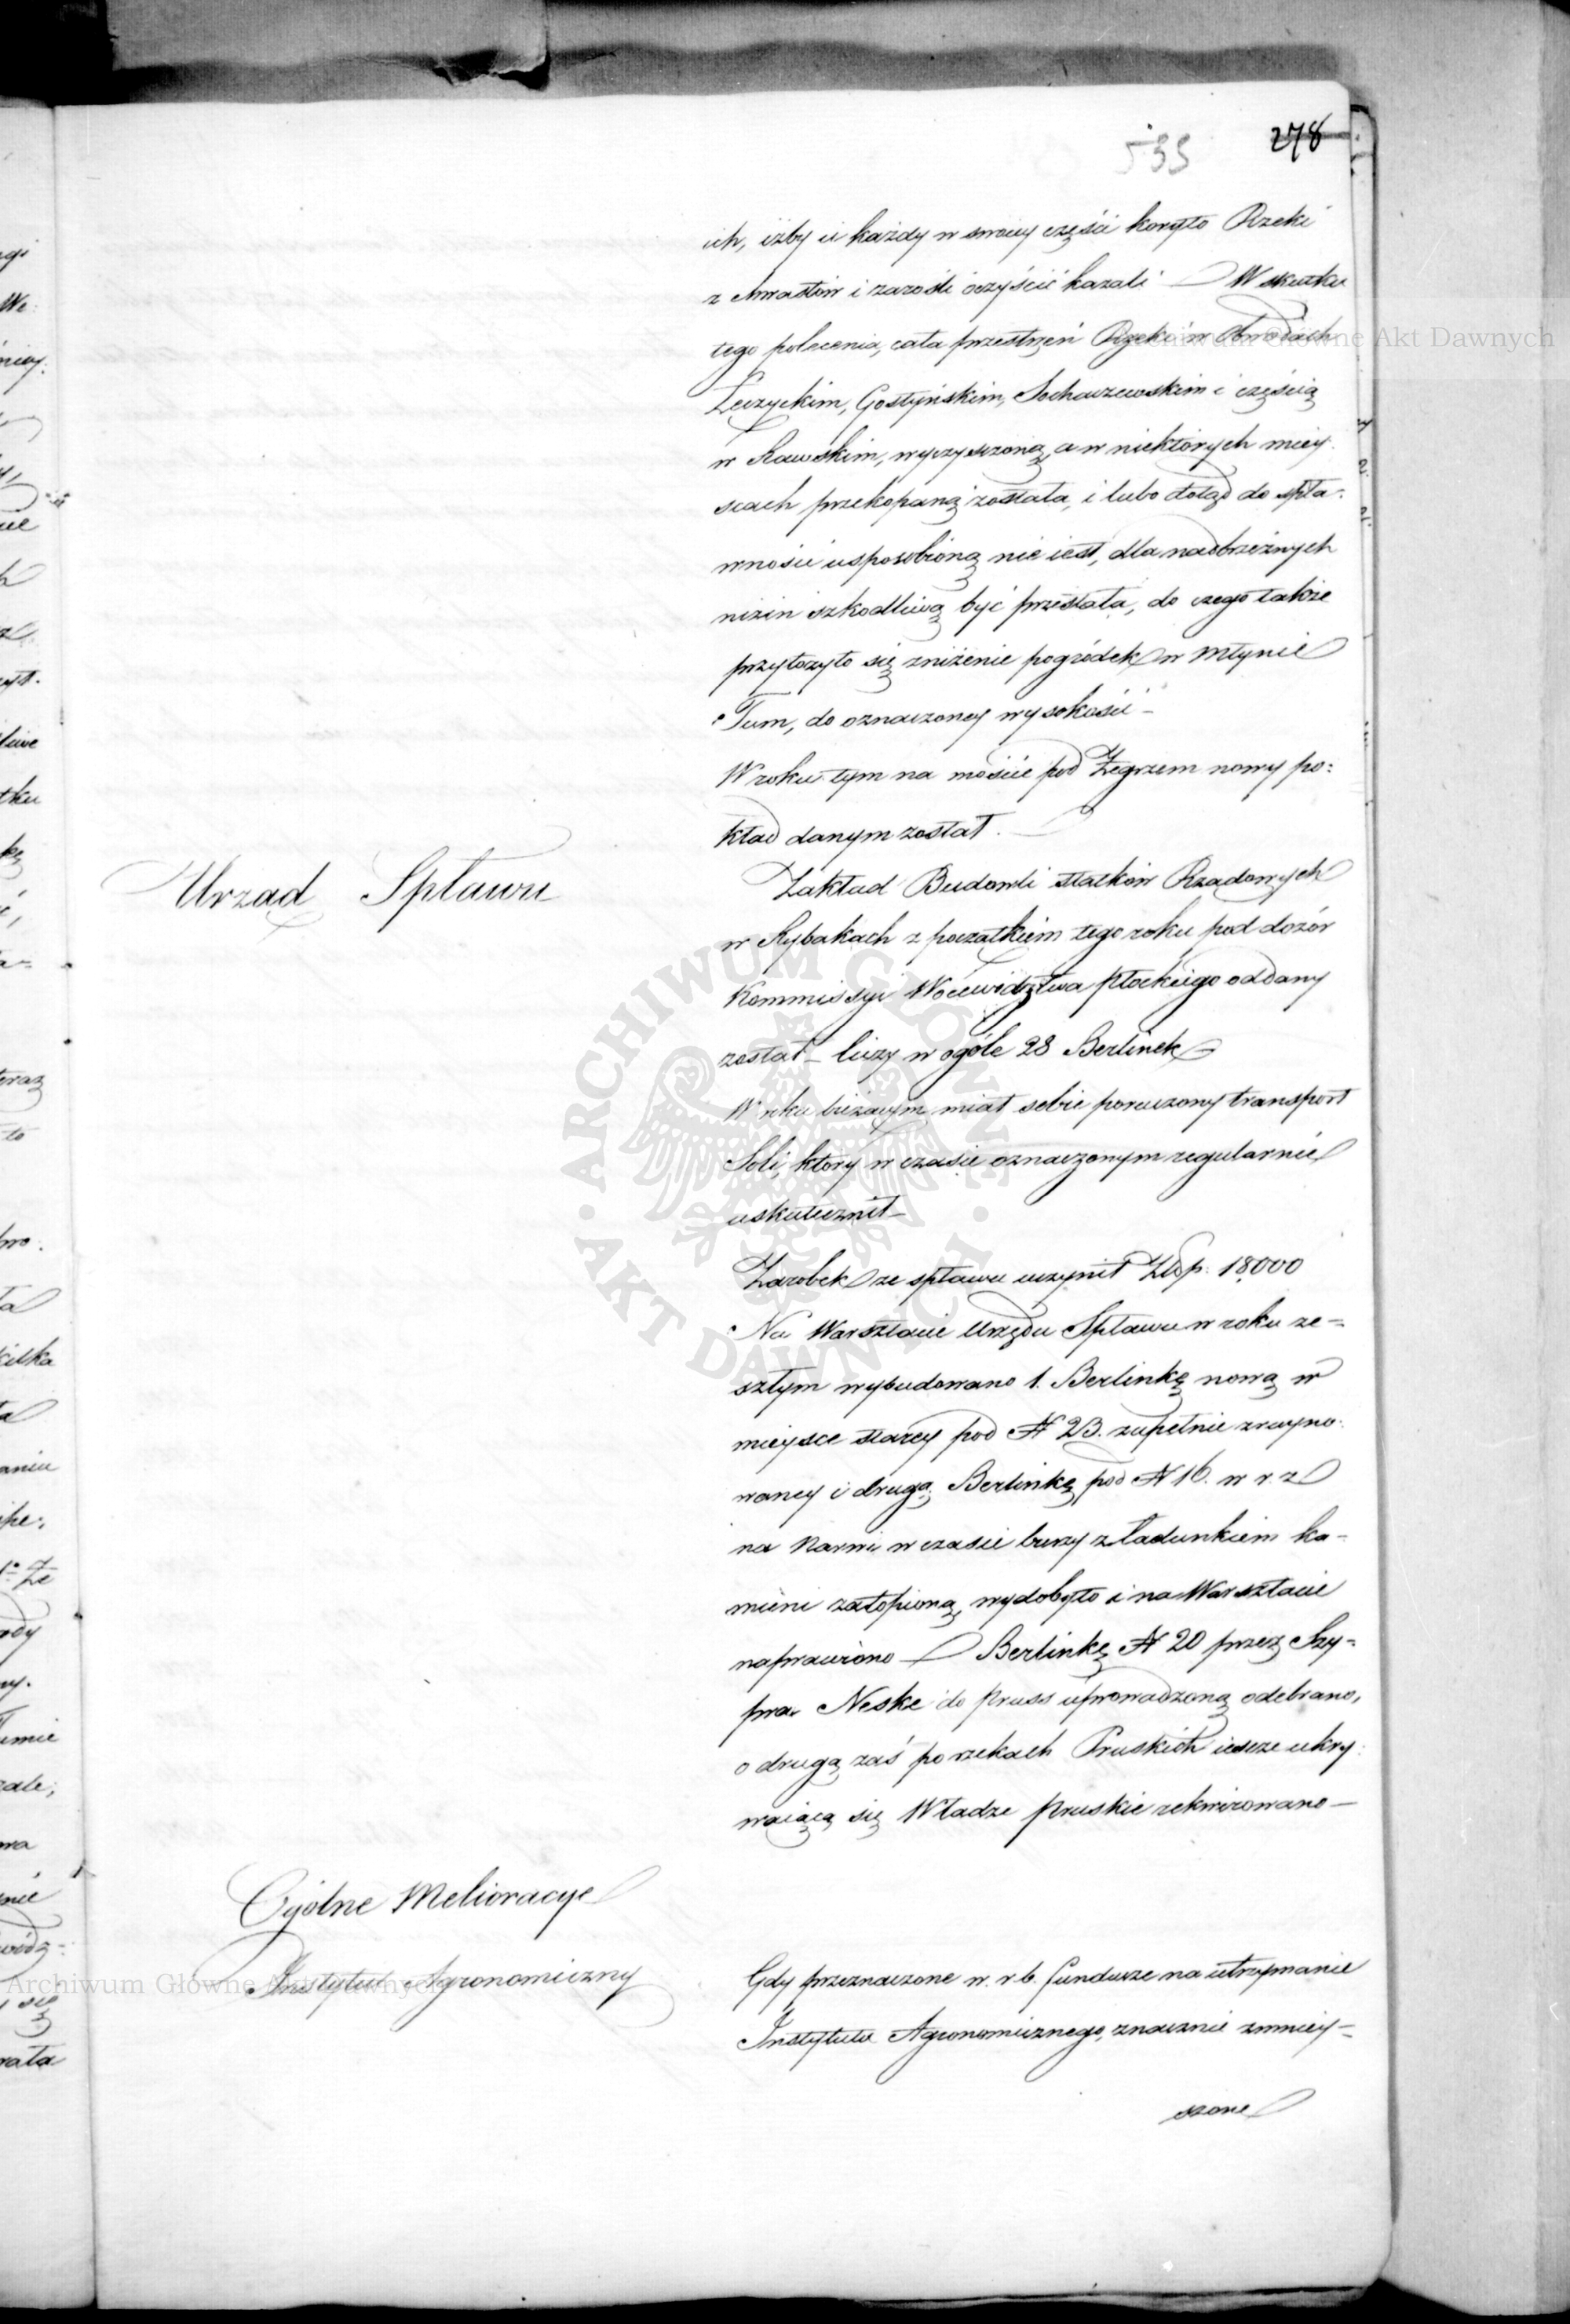 535 278
ich, iżby ci każdy w swoiey części koryto Rzeki
z chwastów i zarośli oczyścić kazali — W skutku
tego polecenia, cała przestrzeń Rzeki w Obwodach
Łęczyckim, Gostyńskim, Sochaczewskim i częścią
w Rawskim, wyczyszczoną, a w niektórych miey-
scach przekopaną została, i lubo dotąd do spła-
wności usposobioną nie iest, dla nadbrzeżnych
nizin szkodliwą być przestała, do czego także
przyłożyło się zniżenie pogródek w młynie
Tum, do oznaczoney wysokości —
W roku tym na moście pod Zegrzem nowy po-
kład danym został. —
Urząd Spławu
Zakład Budowli statków Rządowych
w Rybakach z początkiem tego roku pod dozór
Kommissyi Woiewództwa Płockiego oddany
został — liczy w ogóle 28 Berlinek —
W roku bieżącym miał sobie poruczony transport
Soli, który w czasie oznaczonym regularnie
uskutecznił —
Zarobek ze spławu uczynił Złp. 18,000
Na Warsztacie Urzędu Spławu w roku ze-
szłym wybudowano 1. Berlinkę nową w
mieysce starey pod N 23. zupełnie zruyno-
waney i drugą Berlinkę pod N 16. w r. z.
na Narwi w czasie burzy z ładunkiem ka-
mieni zatopioną, wydobyto i na Warsztacie
naprawiono — Berlinkę N 20 przez Szy-
pra Neske do Pruss uprowadzoną odebrano,
o drugą zaś po rzekach Pruskich ieszcze ukry-
waiącą się Władze Pruskie rekwirowano —
Ogólne Melioracye
Instytut Agronomiczny
Gdy przeznaczone w. r. b. fundusze na utrzymanie
Instytutu Agronomicznego, znacznie zmniey-
szone
Archiwum Główne Akt Dawnych
ARCHIWUM GŁÓWNE · AKT DAWNYCH ·
Archiwum Główne Akt Dawnych